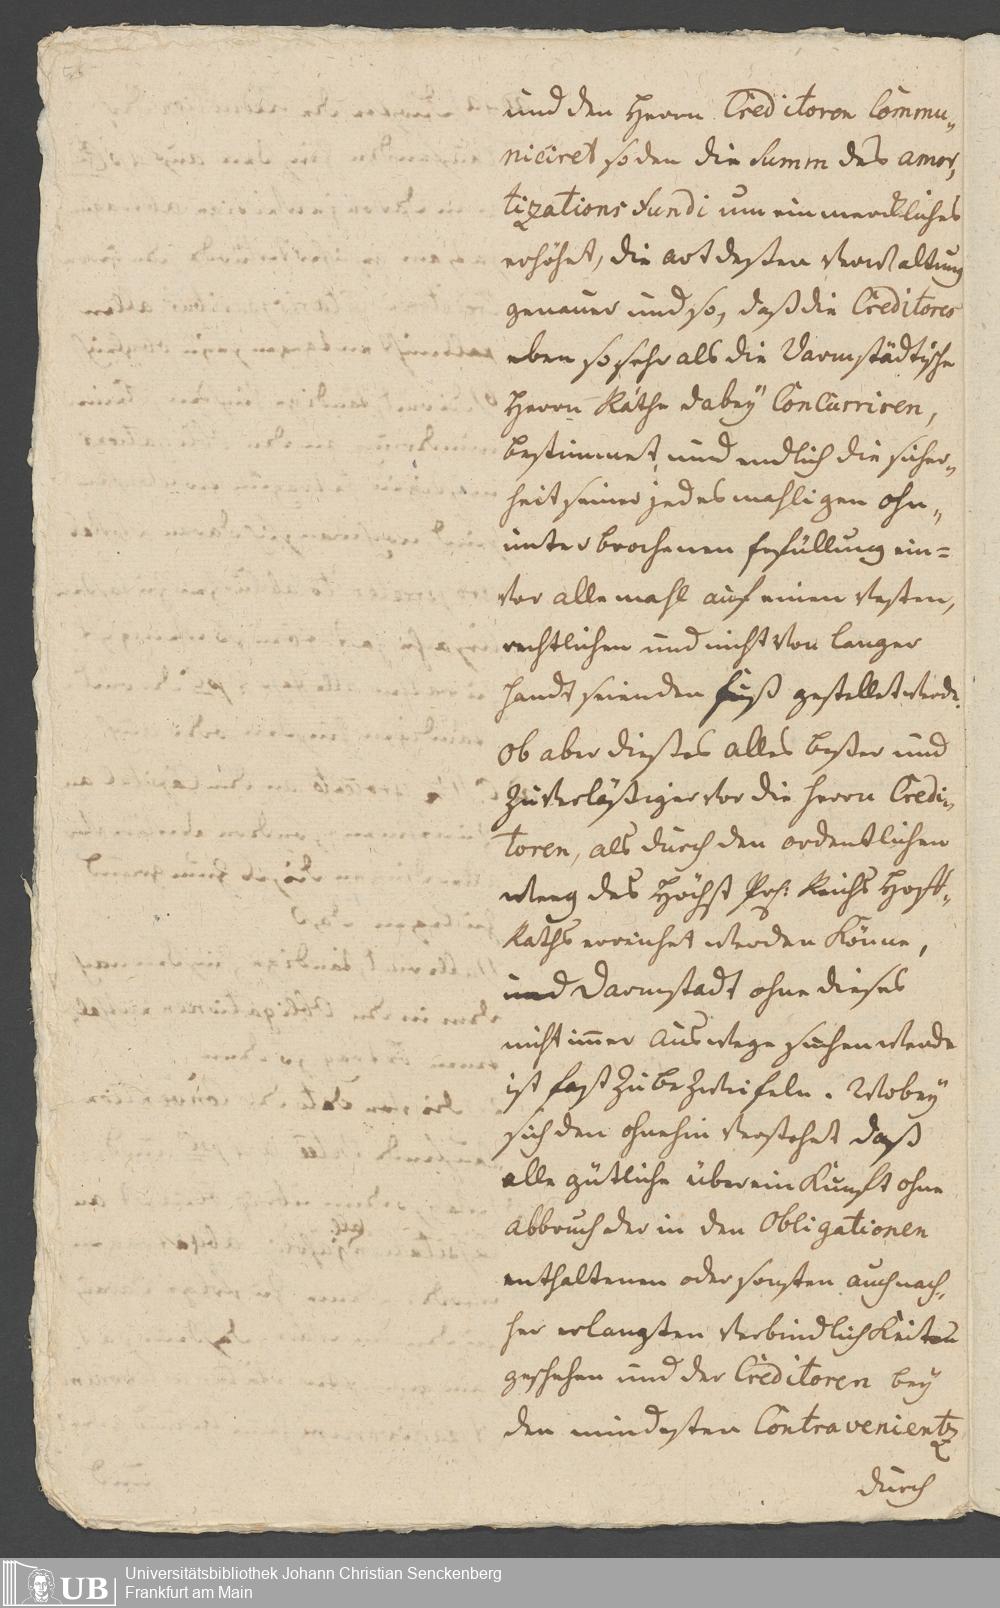 und den Herrn Creditoren Commu„
niciret so den die Summ des amor„
tizations Fundi um ein merckliches
erhöhet, die art deßen Verwaltung
genauer und so, daß die Creditores
eben so sehr als die Darmstädtische
Herrn Räthe dabeÿ Concurriren,
bestimmet, und endlich die sicher„
heit seiner jedesmahligen ohn„
unterbrochenen Erfüllung ein=
vor allemahl auf einen Vesten,
rechtlichen und nicht von langer
handt seienden fuß gestellet werde.
Ob aber dießes alles beßer und
zuverläßiger vor die Herrn Credi„
toren, als durch den ordentlichen
Weeg des Höchst Pr: Reichs Hoff„
Raths erreichet werden könne,
und Darmstadt ohne dieses
nicht immer Auswege suchen werde
ist fast zu bezweifeln. Wobeÿ
sich den ohnehin verstehet daß
alle gütliche übereinkunft ohne
abbruch der in den Obligationen
enthaltenen oder sonsten auch nach„
her erlangten Verbindlichkeiten
geschehen und der Creditoren beÿ
den mindesten Contravenientz
durch
Universitätsbibliothek Johann Christian Senckenberg
Frankfurt am Main
UB